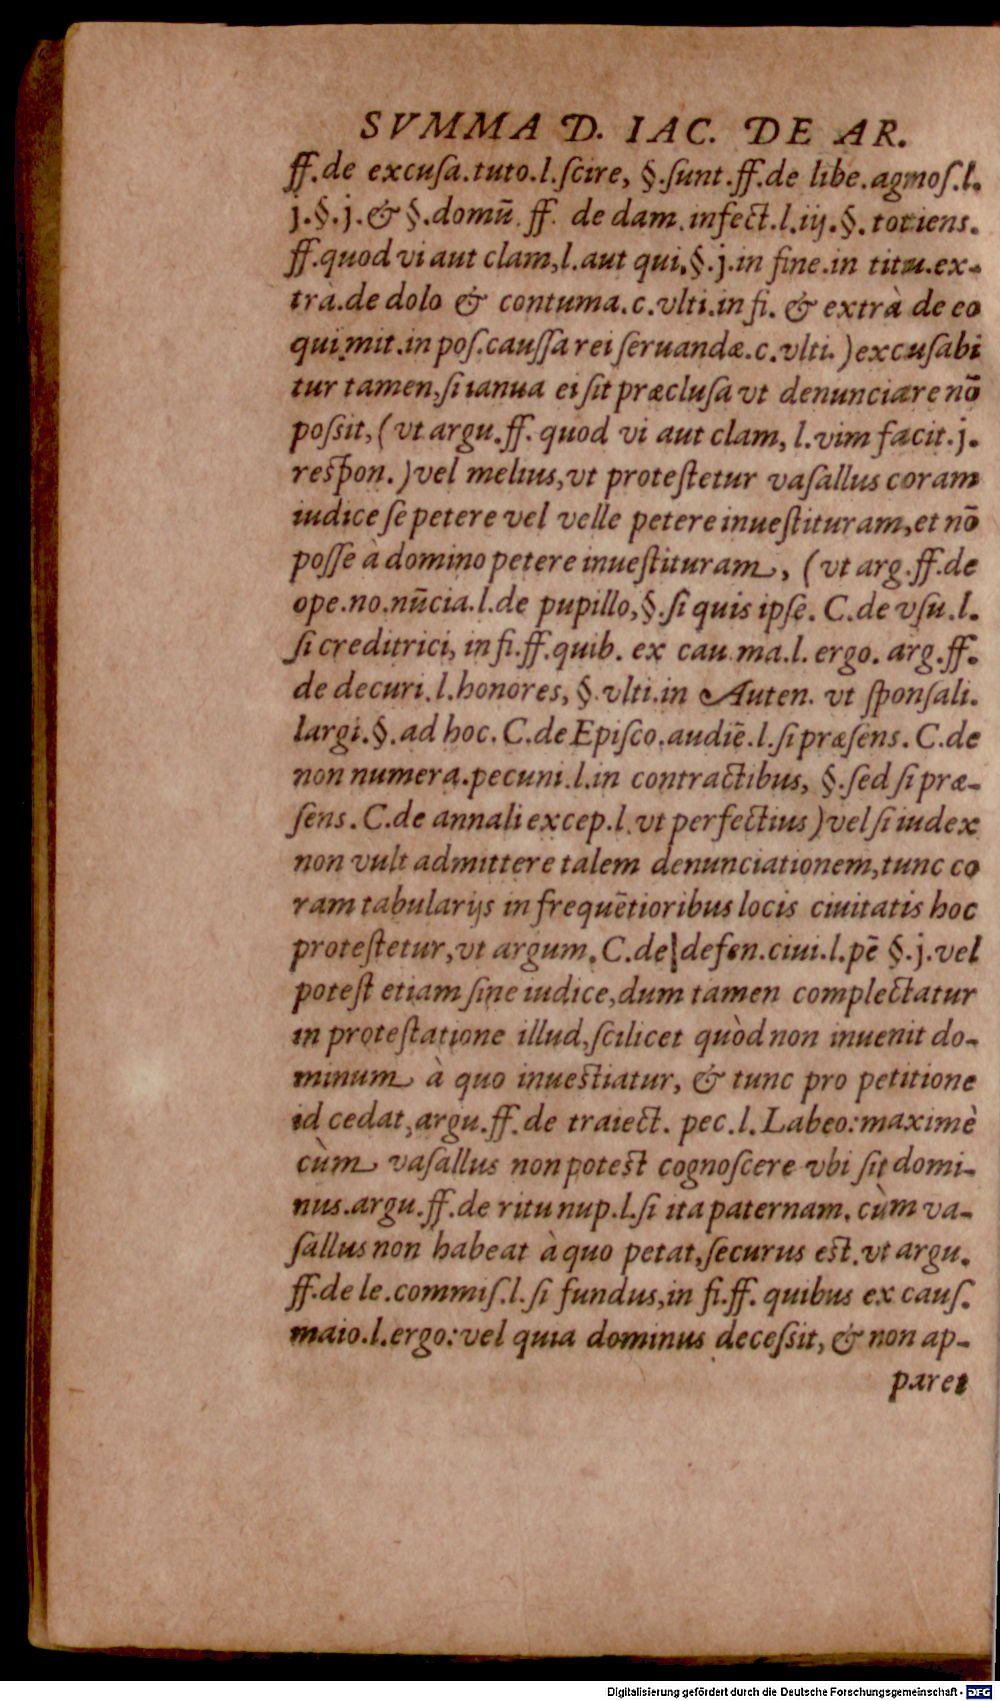 SVMMA D. IAC. DE AR.
ff.de excuſa.tuto.l.ſcire, §.ſunt.ff.de libe.agnoſ.l.
j.§.j.& §.domū. ff. de dam.infect.l.iij.§. totiens.
ff.quod vi aut clam,l.aut qui.§.j.in fine.in titu.ex-
trà.de dolo & contuma.c.vlti.in fi. & extrà de eo
qui mit.in poſ.cauſſa rei ſeruandæ.c.vlti.) excuſabi
tur tamen,ſi ianua ei ſit præcluſa vt denunciare nō
poſsit,(vt argu.ff. quod vi aut clam, l.vim facit.j.
reſpon.)vel melius,vt proteſtetur vaſallus coram
iudice ſe petere vel velle petere inueſtituram,et nō
poſſe à domino petere inueſtituram, (vt arg.ff.de
ope.no.nūcia.l.de pupillo,§.ſi quis ipſe. C.de vſu.l.
ſi creditrici, in fi.ff.quib. ex cau.ma.l. ergo. arg.ff.
de decuri.l.honores, §.vlti.in Auten. vt ſponſali.
largi.§.ad hoc. C.de Epiſco.audiē.l.ſi præſens. C.de
non numera.pecuni.l.in contractibus, §.ſed ſi præ-
ſens. C.de annali excep.l.vt perfectius)vel ſi iudex
non vult admittere talem denunciationem,tunc co
ram tabularijs in frequētioribus locis ciuitatis hoc
proteſtetur,vt argum. C.de defen.ciui.l.pē §.j.vel
poteſt etiam ſine iudice,dum tamen complectatur
in proteſtatione illud,ſcilicet quòd non inuenit do-
minum à quo inueſtiatur, & tunc pro petitione
id cedat,argu.ff.de traiect. pec.l.Labeo:maximè
cùm vaſallus non poteſt cognoſcere vbi ſit domi-
nus.argu.ff.de ritu nup.l.ſi ita paternam. cùm va-
ſallus non habeat à quo petat,ſecurus eſt.vt argu.
ff.de le.commiſ.l.ſi fundus,in fi.ff. quibus ex cauſ.
maio.l.ergo:vel quia dominus deceſsit, & non ap-
paret
Digitalisierung gefördert durch die Deutsche Forschungsgemeinschaft - DFG